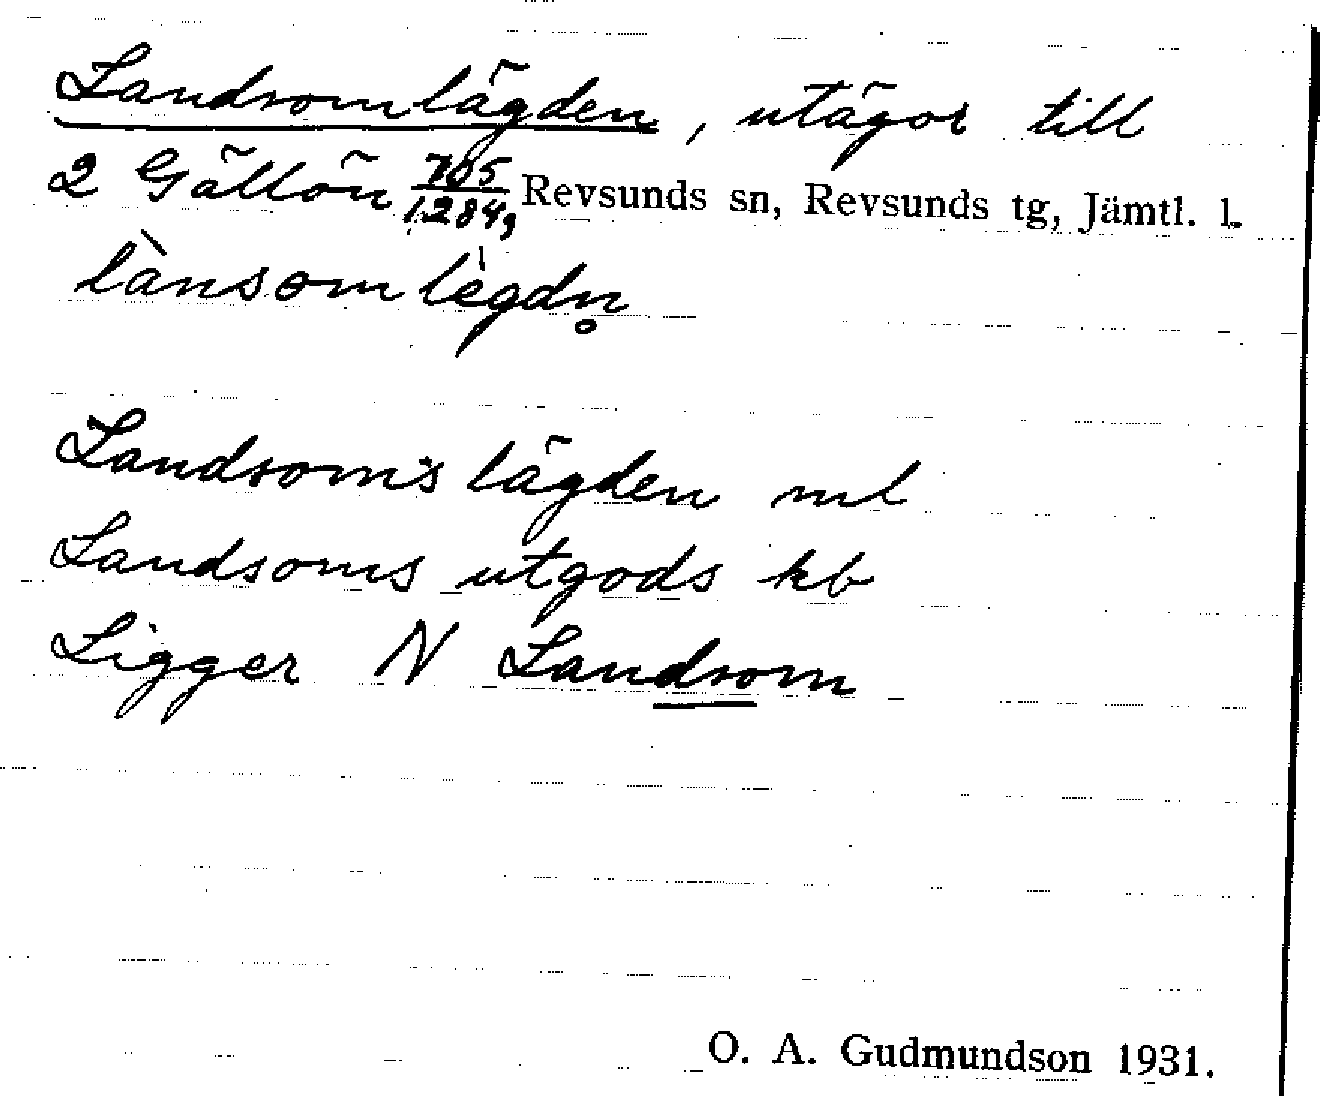 Landsomlägden, utägor till
2 Gällön 705/1284, Revsunds sn, Revsunds tg, Jämtl. l.
lànsomlègdn̥
Landsoms lägden ml
Landsoms utgods kb
Ligger N Landsom
O. A. Gudmundson 1931.